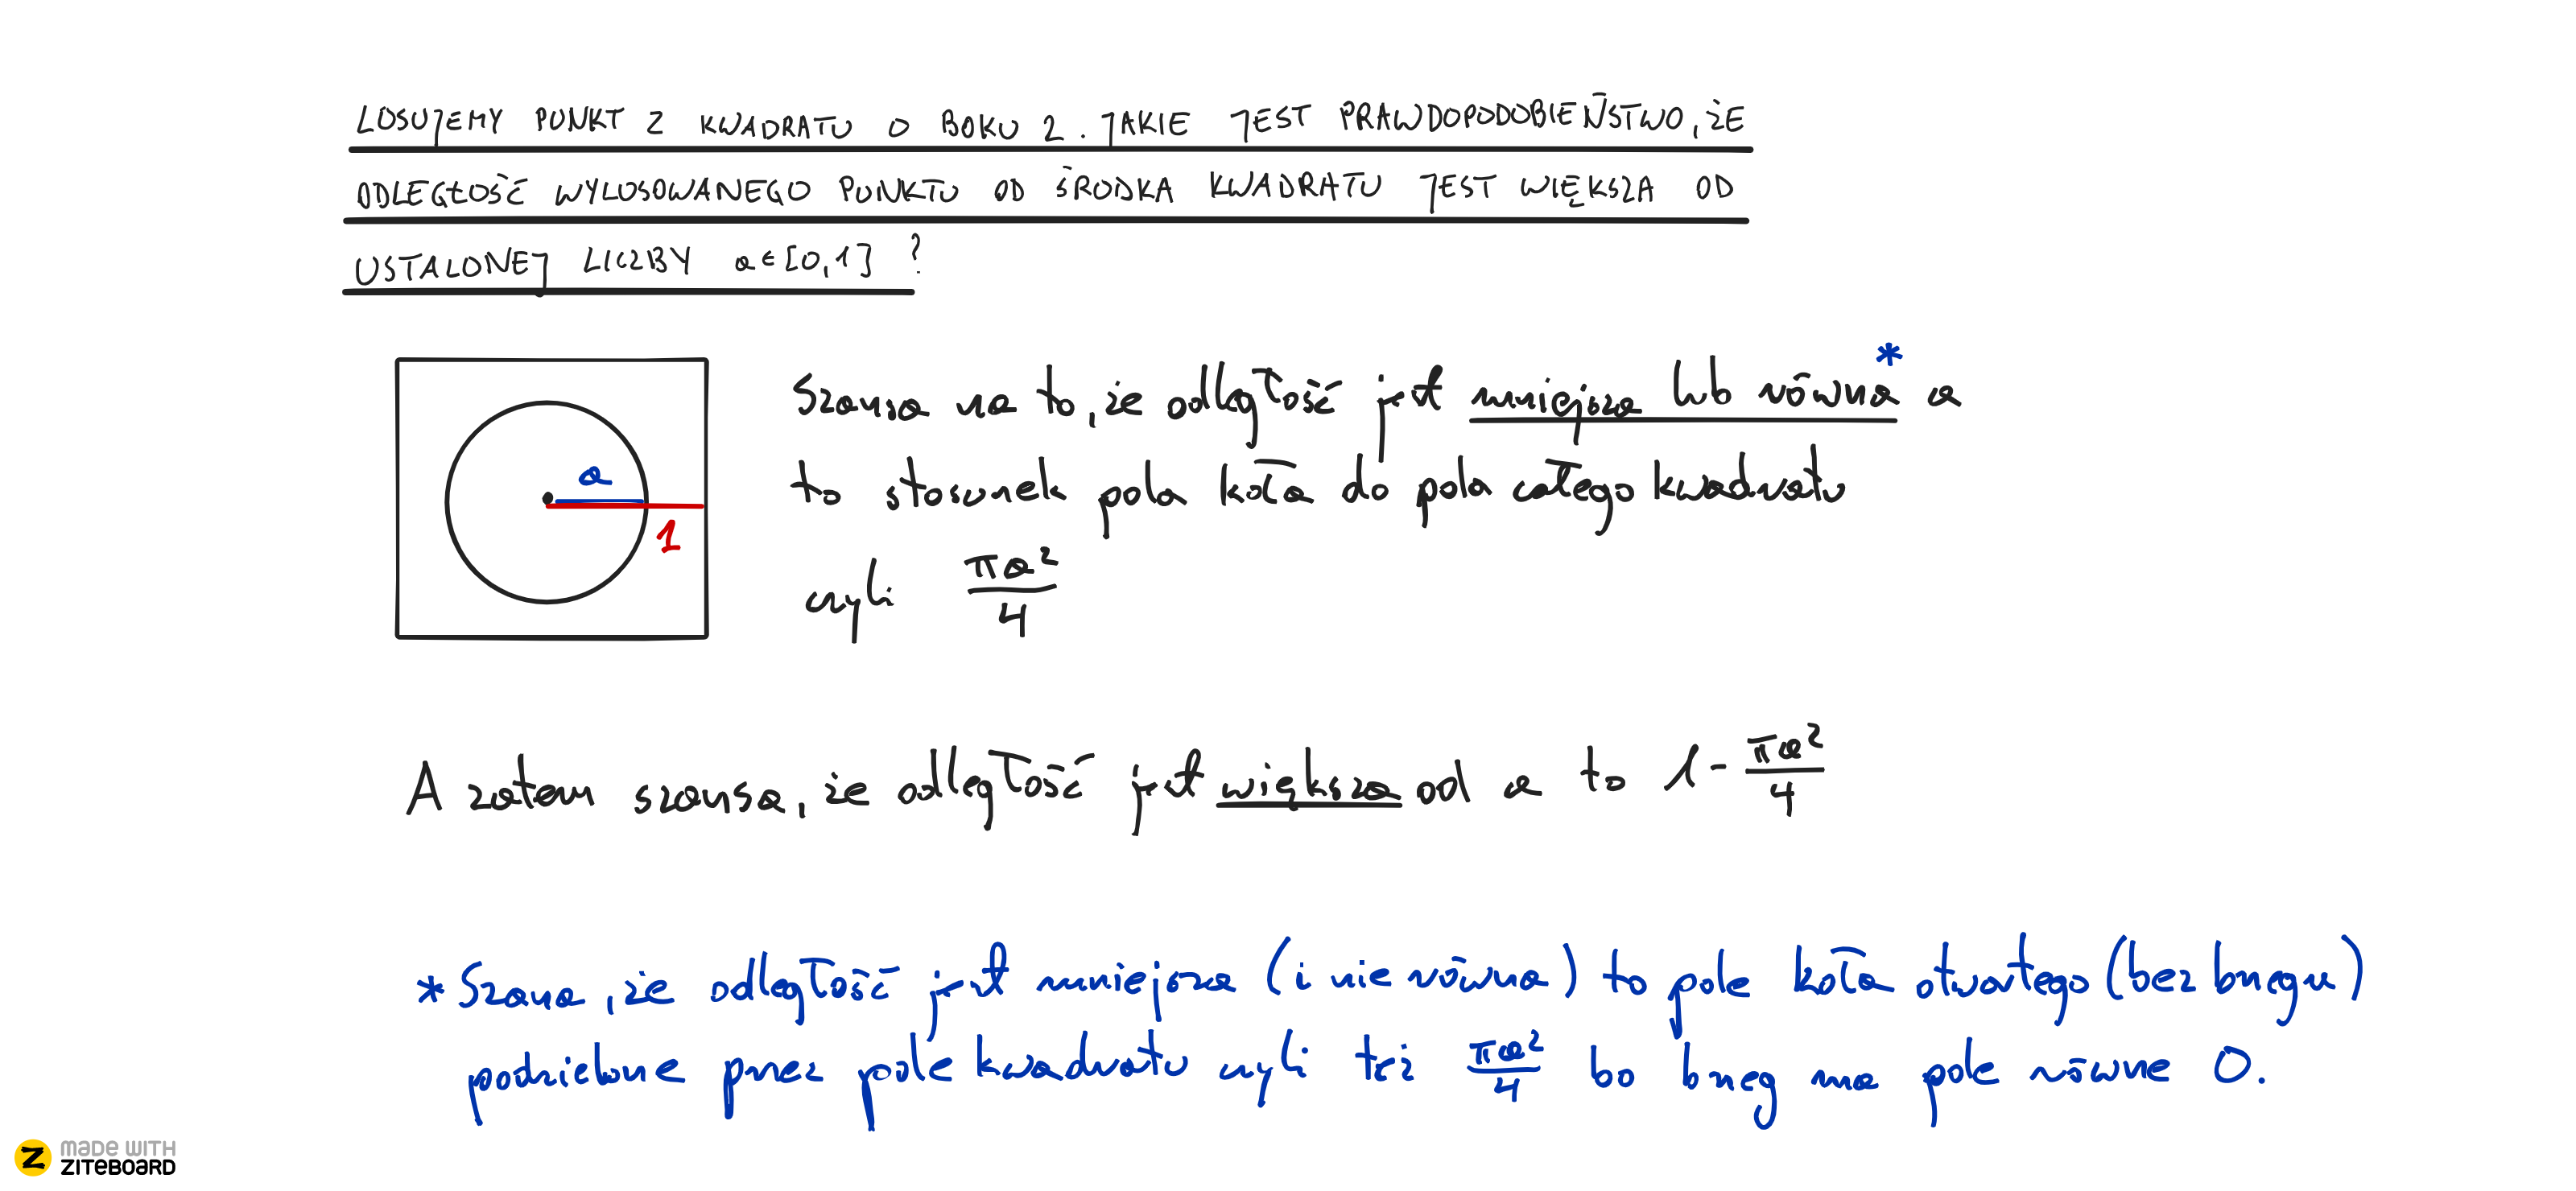 LOSUJEMY PUNKT Z KWADRATU O BOKU 2. JAKIE JEST PRAWDOPODOBIEŃSTWO, ŻE
ODLEGŁOŚĆ WYLOSOWANEGO PUNKTU OD ŚRODKA KWADRATU JEST WIĘKSZA OD
USTALONEJ LICZBY a ∈ [0, 1] ?
Szansa na to, że odległość jest mniejsza lub równa* a
to stosunek pola koła do pola całego kwadratu
a
1
czyli πa²/4
A zatem szansa, że odległość jest większa od a to 1 - πa²/4
* Szansa, że odległość jest mniejsza (i nie równa) to pole koła otwartego (bez brzegu)
podzielone przez pole kwadratu czyli też πa²/4 bo brzeg ma pole równe 0.
MADE WITH
ZITEBOARD